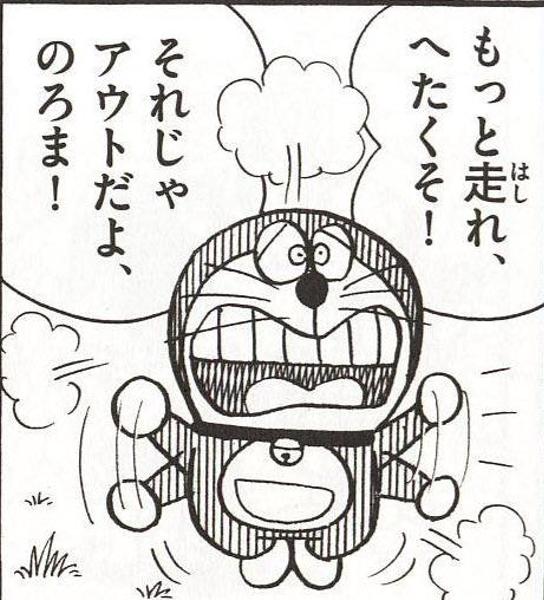 もっと走れ、
へたくそ！
はし
それじゃ
アウトだよ、
のろま！